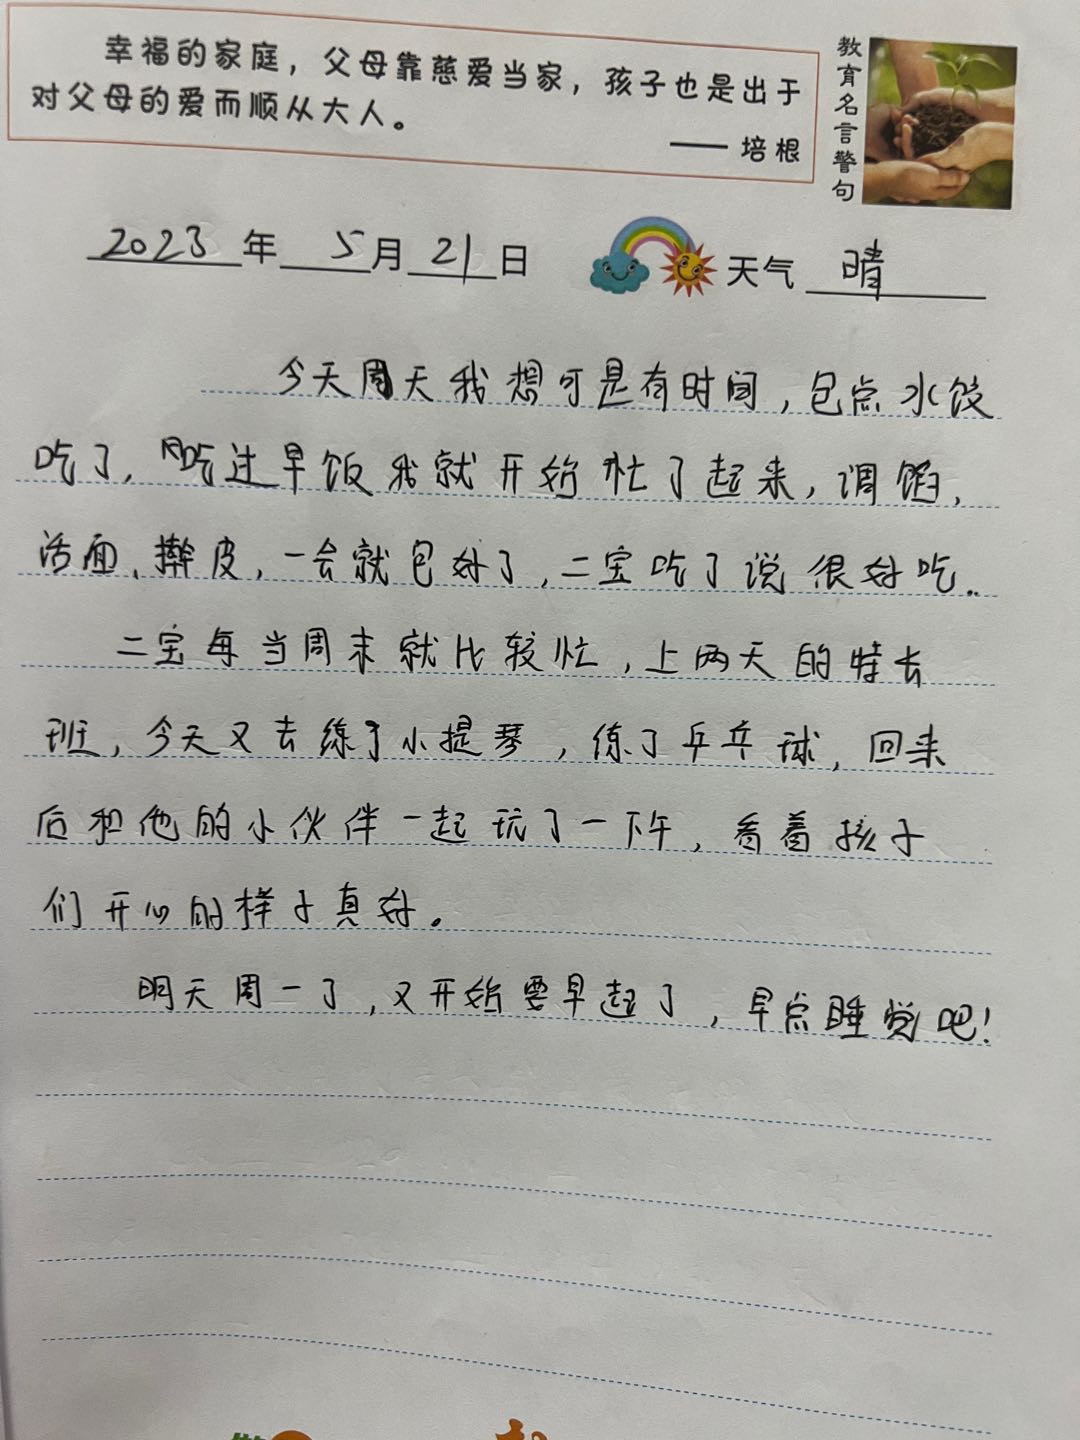 幸福的家庭，父母靠慈爱当家，孩子也是出于
对父母的爱而顺从大人。
—— 培根
教育名言警句
2023年 5月21日 天气 晴
今天周天我想可是有时间，包点水饺
吃了，吃过早饭我就开始忙了起来，调馅，
活面、擀皮，一会就包好了，二宝吃了说很好吃..
二宝每当周末就比较忙，上两天的特长
班，今天又去练了小提琴，练了乒乓球，回来
后和他的小伙伴一起玩了一下午，看着孩子
们开心的样子真好。
明天周一了，又开始要早起了，早点睡觉吧！